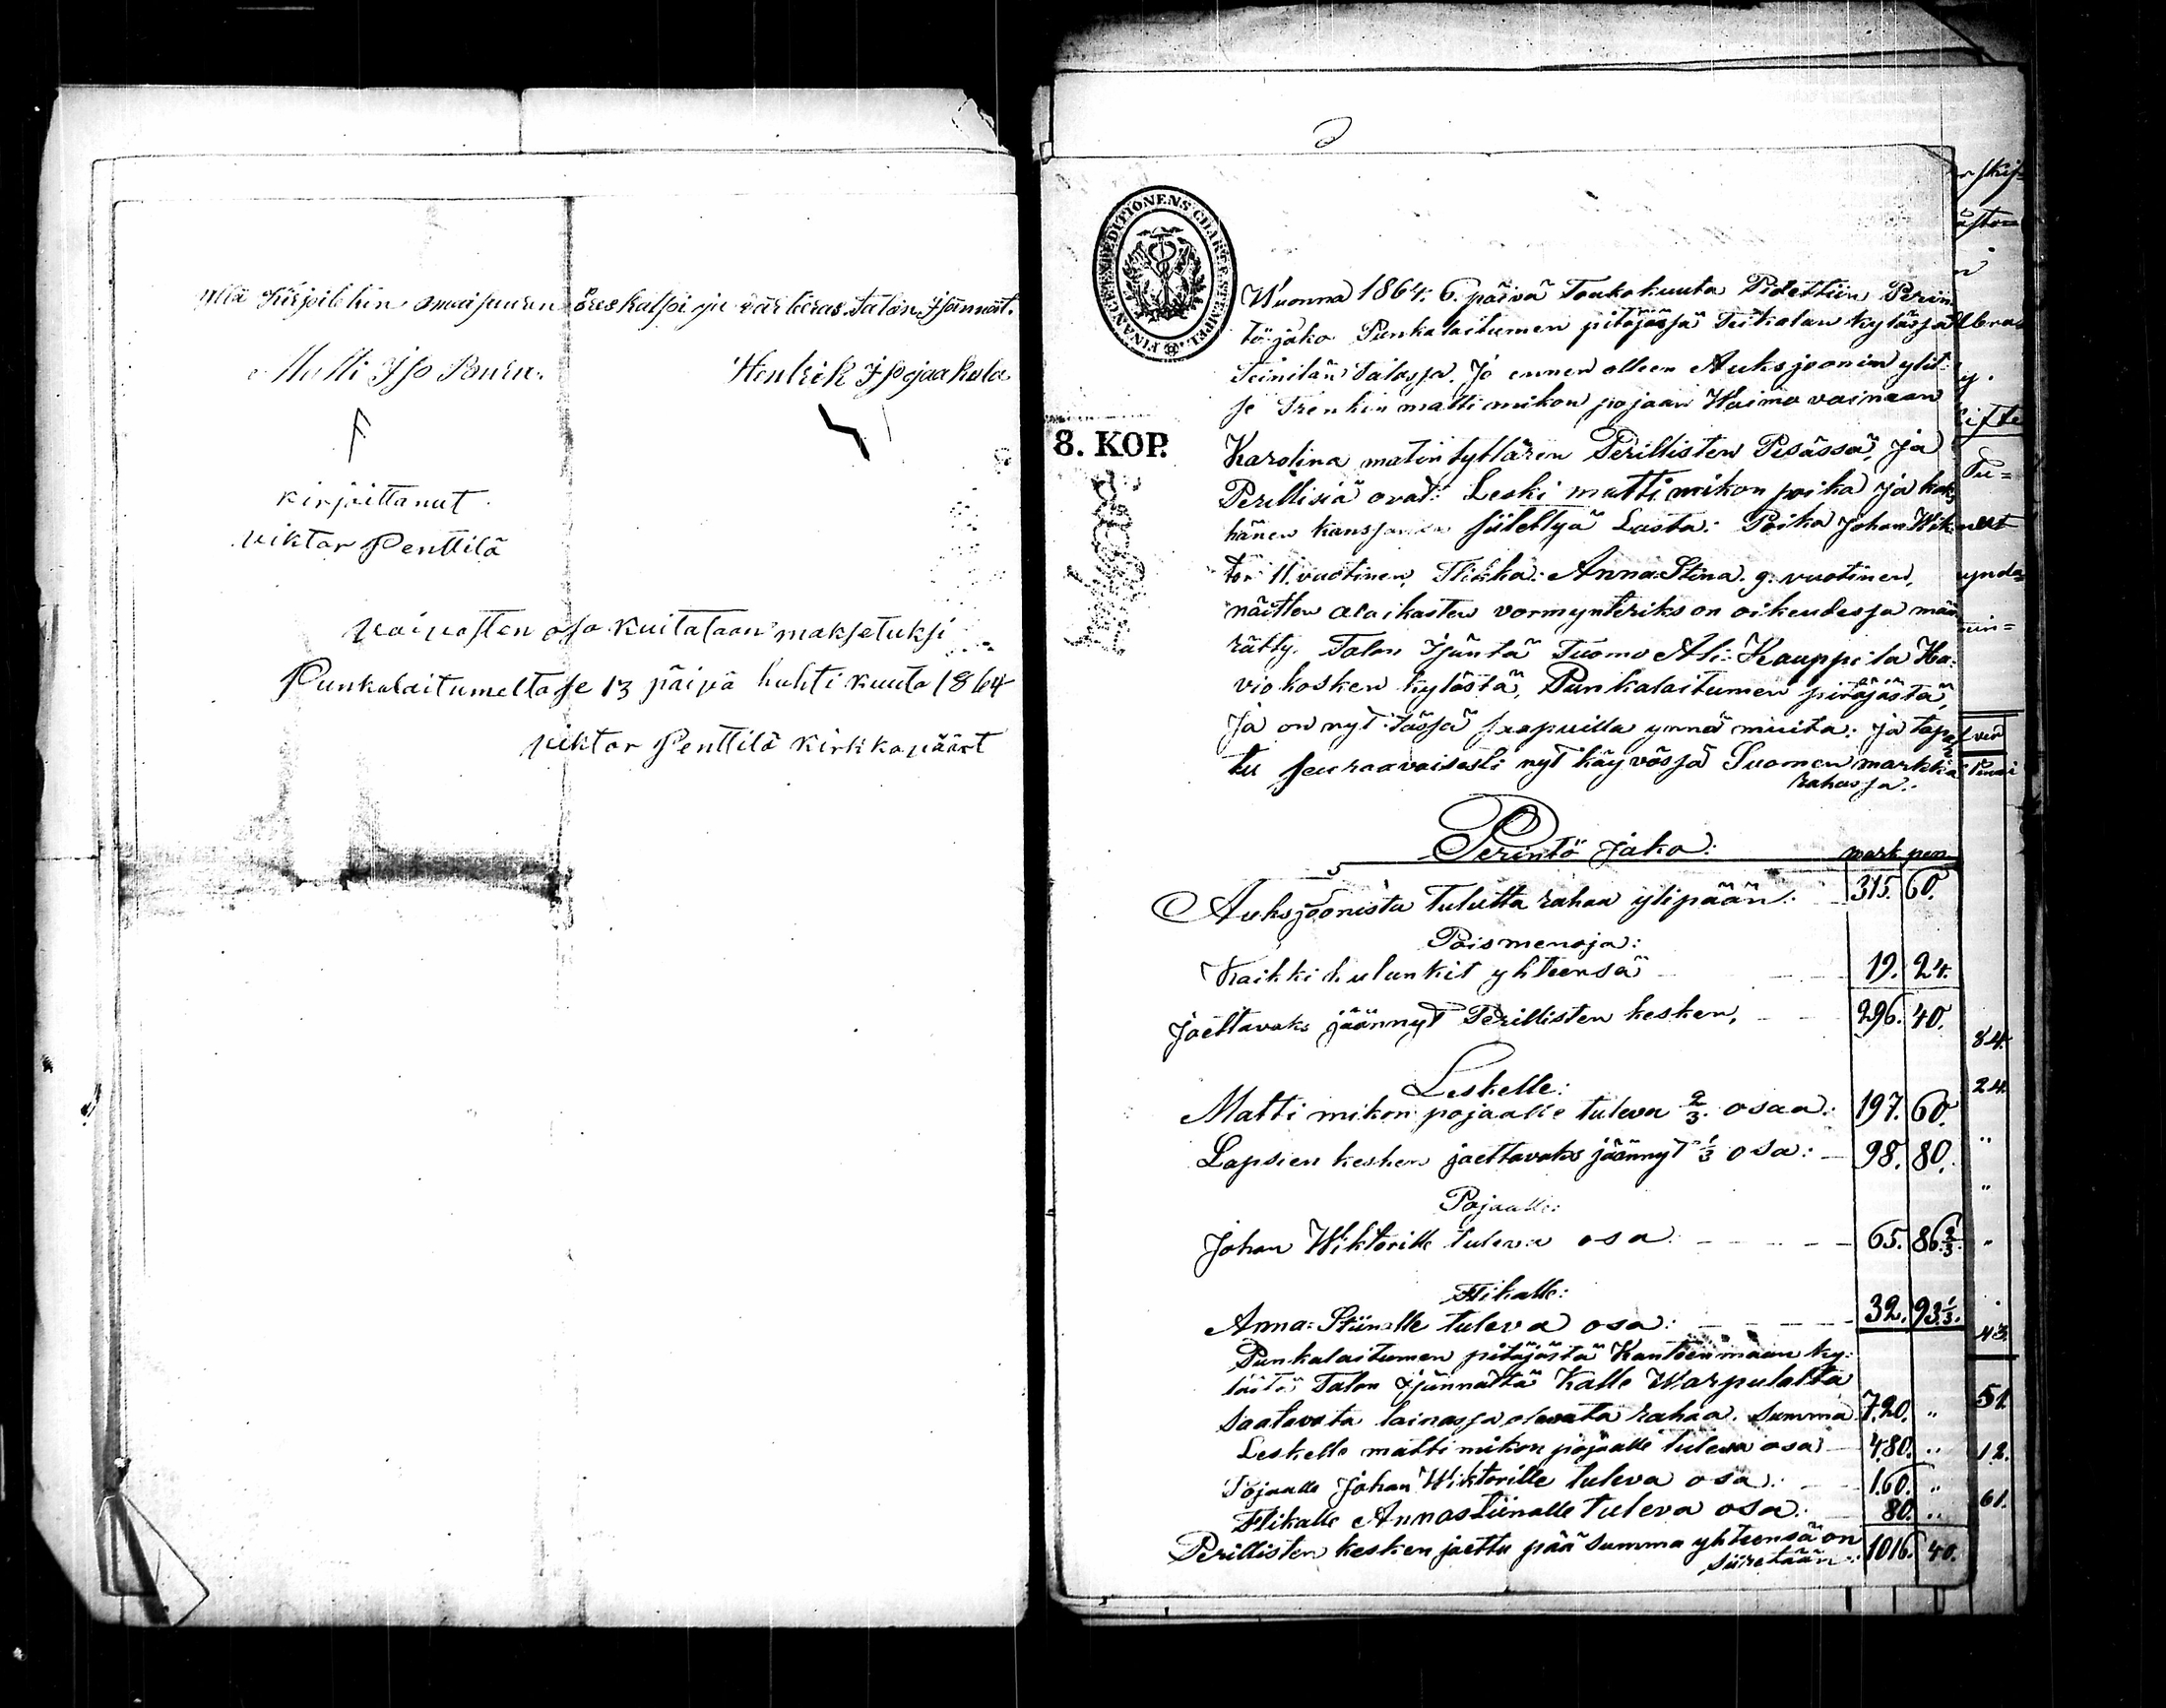 Matti Iso Pauru. Henrik Iso jaakola
kirjoittanut
viktor Penttilä
vaivasten osa kuitataan maksetuksi
Punkalaitumella se 13 päivä huhti kuuta 1864
viktor Penttilä kirkkoväärt
FINANCE EXPEDITIONENS CHARTÆ STEMPEL
8. KOP.
Wuonna 1864. 6. päivä Toukokuuta Pidettiin Perin
tö jako Punkalaitumen pitäjässä Teikalan kylässä
Teinilän Talossa. Jo ennen olleen Auksjoonin ylit:
se Trenkin matti mikon pojaan Waimo vainaan
Karolina matin tyttären Perillisten Pesässä, Ja
Perillisiä ovat: Leski matti mikon poika ja kaks
hänen kanssansa siilettyä Lasta: Poika Johan Wik
tor 11. vuotinen, Flikka: Anna Stina. 9. vuotinen,
näitten alaikasten vormynteriks on oikeudessa mää
rätty. Talon Isäntä Tuomo Ali-Kauppila Ha:
viokosken kylästä, Punkalaitumen pitäjästä,
Ja on nyt tässä saapuilla ynnä muita. Ja tapah
tu seuraavaisesti nyt käyvässä Suomen markka
rahassa.
Perintö Jako: mark pen
Auksjoonista Tulutta rahaa ylipään: 315. 60.
Poismenoja:
Kaikki kulunkit yhteensä 19. 24.
Jaettavaks jäännyt Perillisten kesken, 296. 40.
Leskelle:
Matti mikon pojaalle tuleva 2/3. osaa: 197. 60.
Lapsien kesken jaettavaks jäännyt 1/3 osa: 98. 80.
Pojaalle:
Johan Wiktorille tuleva osa 65. 86 2/3.
Flikalle:
Anna-Stiinalle tuleva osa: 32. 93 1/3.
Punkalaitumen pitäjästä Kantoenmaan ky:
lästä Talon Isännältä Kalle Warpulalta
Saatavata lainassa olevata rahaa. Summa 720. "
Leskelle matti mikon pojaalle tuleva osa 480. "
Pojaalle Johan Wiktorille tuleva osa: 160. "
Flikalle Annastiinalle tuleva osa: 80. "
Perillisten kesken jaettu pää summa yhteensä on 1016. 40.
siiretään: